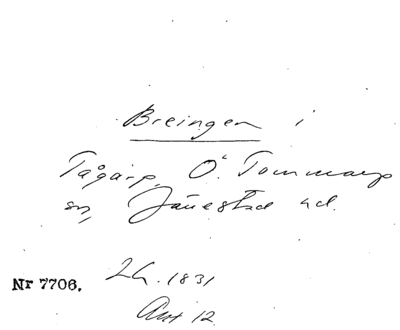 Breingen i
Tågarp, Ö. Tommarp
sn, Järrestad hd.
Lh. 1831
Nr 7706.
Art 12